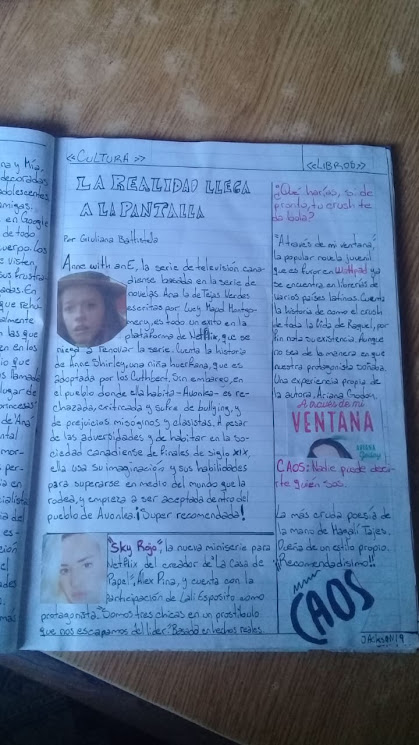 na y Mía,
decoradas
adolescentes
amigas.
en Google
de todo
uerpo. Los
se visten,
sus frustra-
en los
llamado
lugar de
princesas"
de Ana"
<<CULTURA>>
LA REALIDAD LLEGA
A LA PANTALLA
Por Giuliana Battistela
Anne with an E, la serie de televisión cana-
diense basada en la serie de
novelas Ana la de Tejas Verdes
escritas por Lucy Maud Montgo-
mery, es todo un éxito en la
plataforma de Netflix, que se
niega a renovar la serie. Cuenta la historia
de Anne Shirley, una niña huérfana, que es
adoptada por los Cuthbert. Sin embargo, en
el pueblo donde ella habita -Avonlea- es re-
chazada, criticada y sufre de bullying, y
de prejuicios misóginos y clasistas. A pesar
de las adversidades y de habitar en la so-
ciedad canadiense de finales de siglo XIX,
ella usa su imaginación y sus habilidades
para superarse en medio del mundo que la
rodea, y empieza a ser aceptada dentro del
pueblo de Avonlea ¡Super recomendada!
"Sky Rojo", la nueva miniserie para
Netflix del creador de La Casa de
Papel, Alex Pina, y cuenta con la
participación de Lali Esposito como
protagonista. "Somos tres chicas en un prostíbulo
que nos escapamos del líder". Basada en hechos reales.
<<LIBROS>>
¿Qué harías, si de
pronto, tu crush te
da bola?
"A través de mi ventana",
la popular novela juvenil
que es furor en Wattpad ya
se encuentra en librerías de
varios países latinos. Cuenta
la historia de como el crush
de toda la vida de Raquel, por
fin nota su existencia. Aunque
no sea de la manera en que
nuestra protagonista soñaba.
Una experiencia propia de
la autora, Ariana Godoy.
A través de mi
VENTANA
ARIANA
Godoy
CAOS: Nadie puede decir-
te quién sos.
La más cruda poesía de
la mano de Magalí Tajes.
Dueña de un estilo propio.
¡Recomendadísimo!!
CAOS